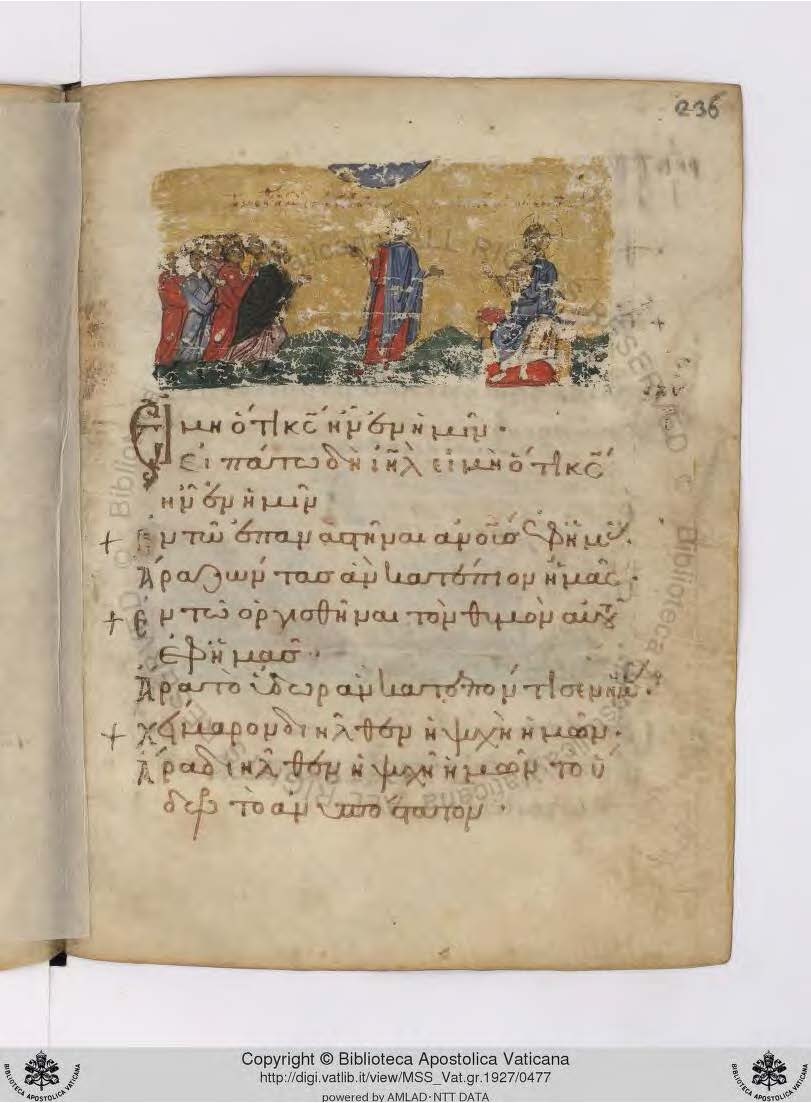 236
Εἰ μὴ ὅτι κς̄ ἦν ἐν ἡμῖν·
εἰπάτω δὴ ιη̄λ εἰ μὴ ὅτι κς̄
ἦν ἐν ἡμῖν
+ ἐν τῶ ἐπαναστῆναι ἀνοῦσ ἐφ ἡμᾶς·
Ἄρα ζῶντασ ἂν κατέπιον ἡμᾶς·
+ ἐν τῶ ὀργισθῆναι τὸν θυμὸν αὐτοῦ
ἐφ ἡμᾶσ·
Ἄρα τὸ ὕδωρ ἂν κατεπόντισεν ἡμᾶς·
+ χείμαρον διῆλθεν ἡ ψυχὴ ἡμῶν·
Ἄρα διῆλθεν ἡ ψυχὴ ἡμῶν τὸ ὕ
δωρ τὸ ἀνυπόστατον·
© Biblioteca Apostolica Vaticana
ALL RIGHTS RESERVED
Copyright © Biblioteca Apostolica Vaticana
http://digi.vatlib.it/view/MSS_Vat.gr.1927/0477
powered by AMLAD·NTT DATA
BIBLIOTECA APOSTOLICA VATICANA
BIBLIOTECA APOSTOLICA VATICANA